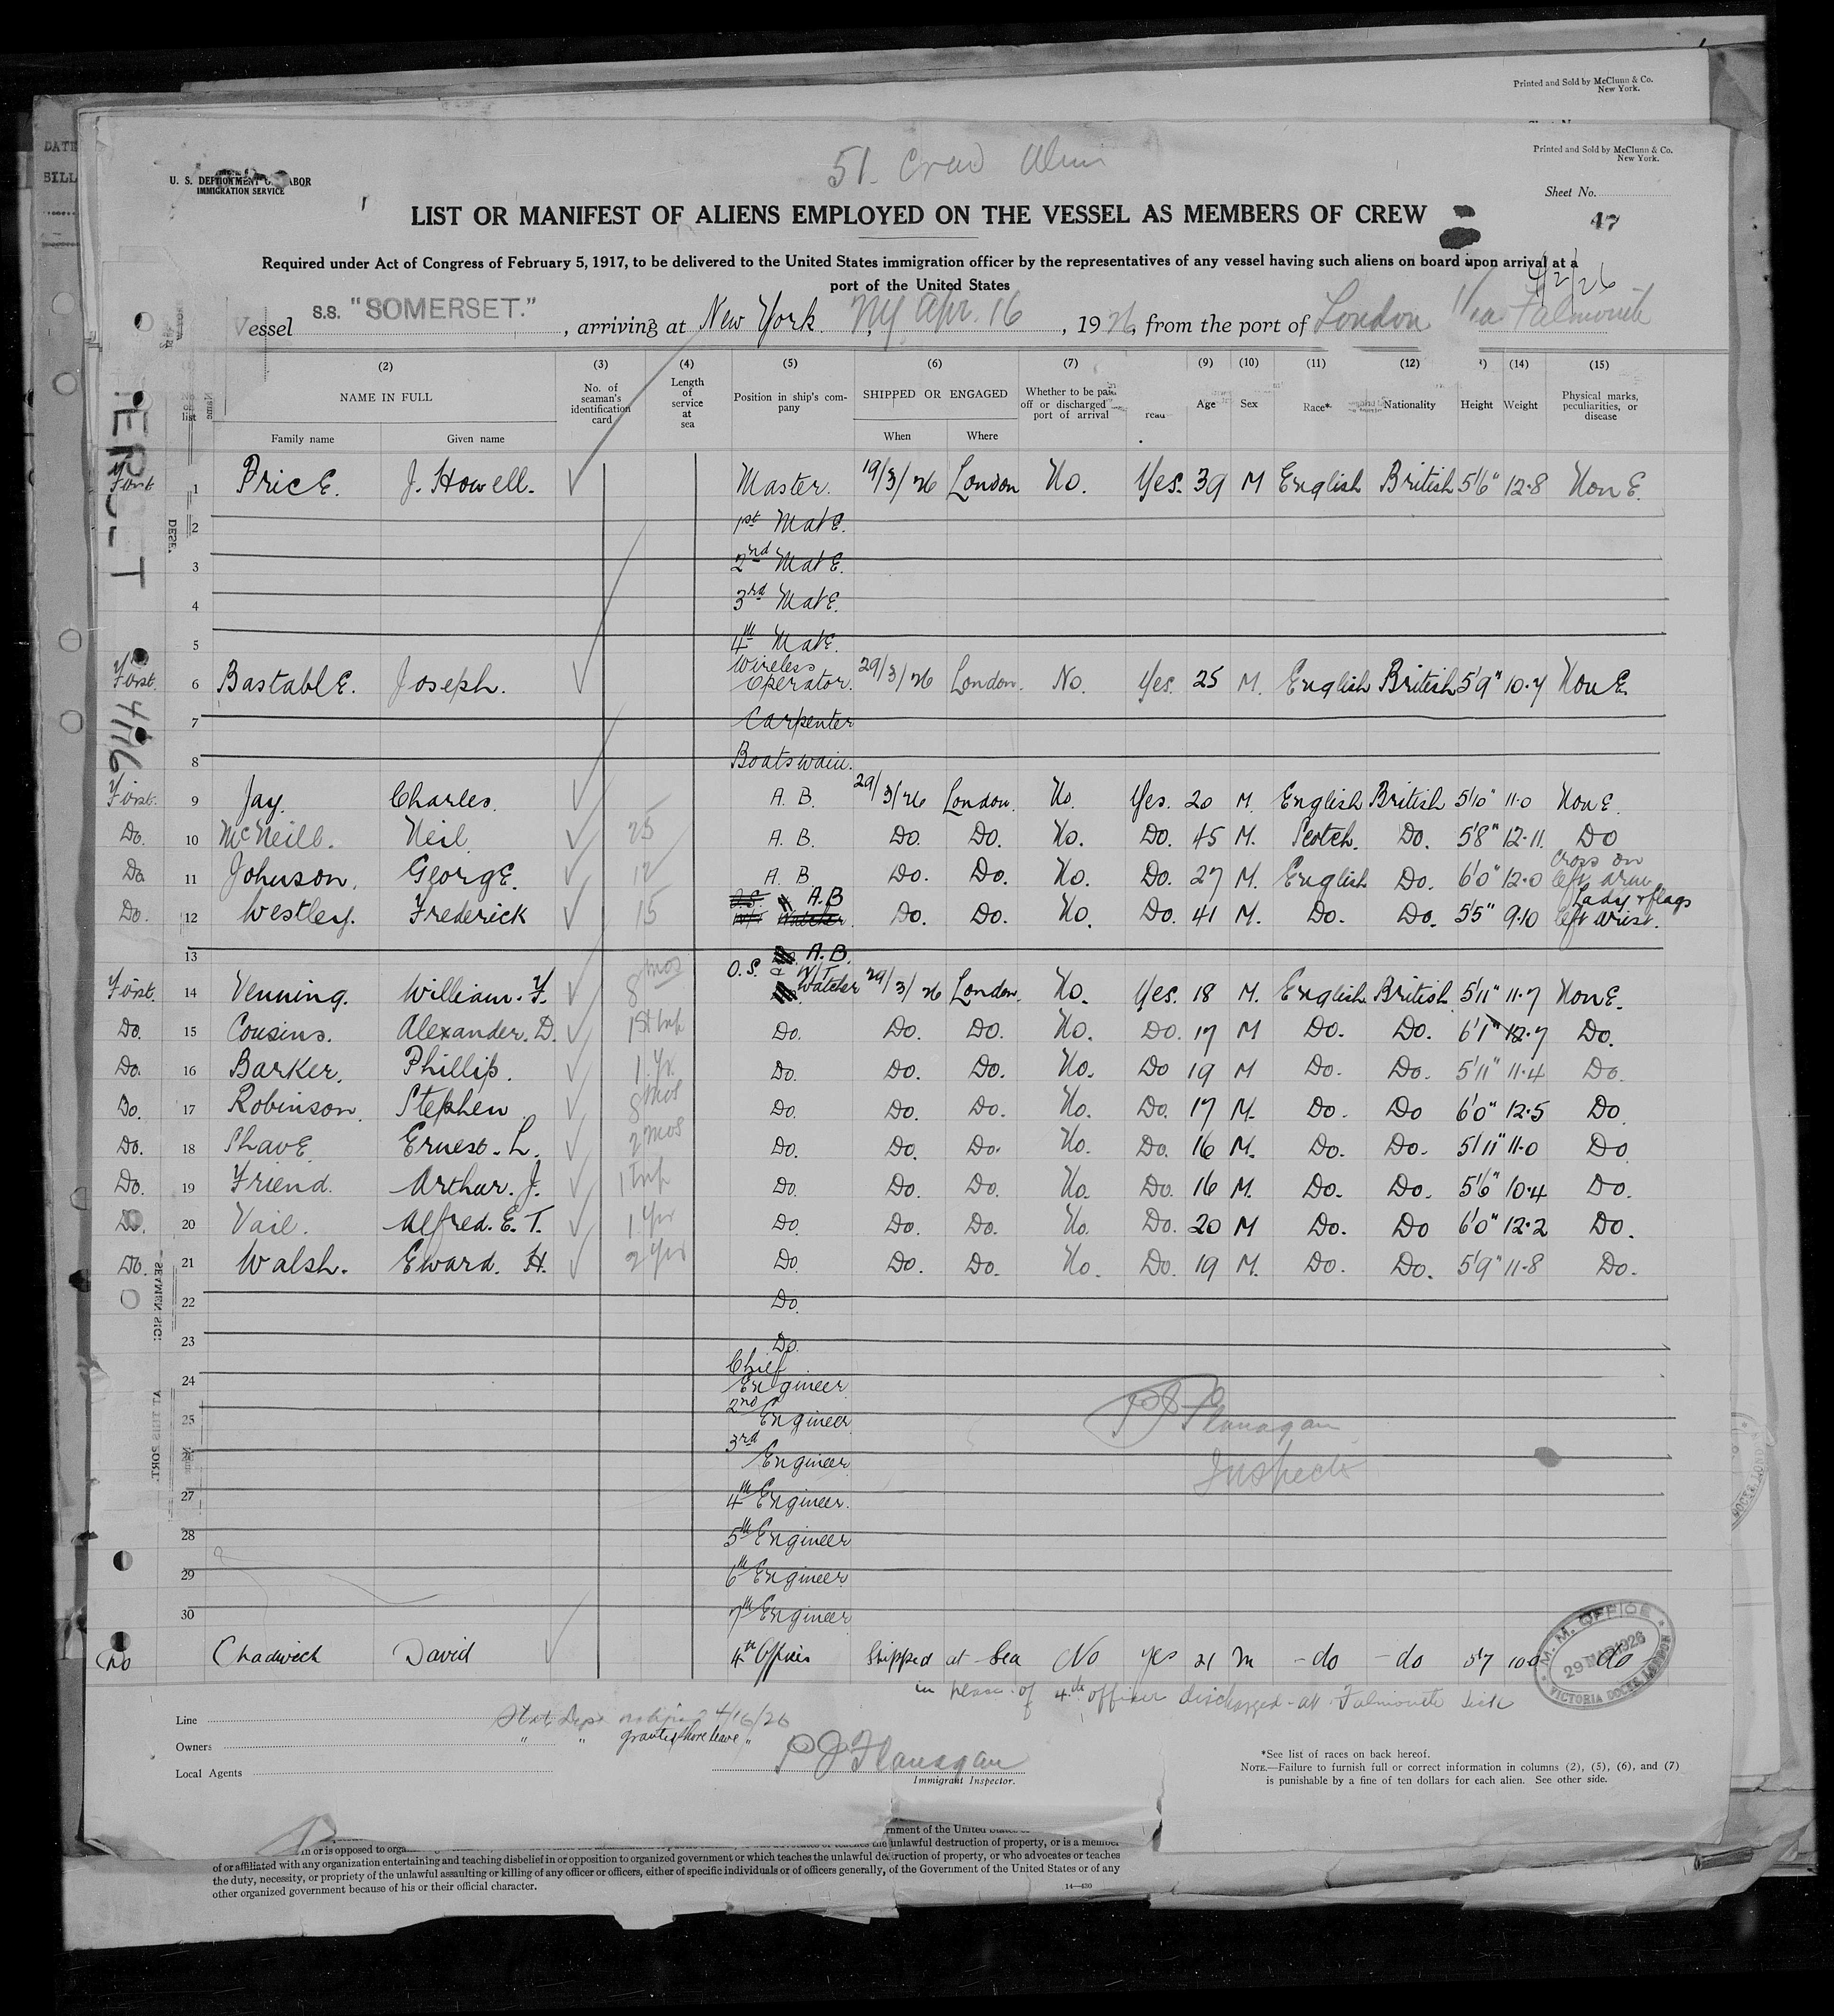 Printed and Sold by McClunn & Co.
New York.
DATE
BILL
Printed and Sold by McClunn & Co.
New York.
51 Crew Alien
U. S. DEPARTMENT OF LABOR
IMMIGRATION SERVICE
Sheet No.
47
LIST OR MANIFEST OF ALIENS EMPLOYED ON THE VESSEL AS MEMBERS OF CREW
Required under Act of Congress of February 5, 1917, to be delivered to the United States immigration officer by the representatives of any vessel having such aliens on board upon arrival at a
port of the United States
4/2/26
Vessel S.S. "SOMERSET." , arriving at New York NY Apr. 16 , 1926, from the port of London Via Falmouth
(2) (3) (4) (5) (6) (7) (9) (10) (11) (12) (14) (15)
NAME IN FULL No. of seaman's identification card Length of service at sea Position in ship's company SHIPPED OR ENGAGED Whether to be paid off or discharged port of arrival read Age Sex Race* Nationality Height Weight Physical marks, peculiarities, or disease
No. on list Family name Given name When Where
First 1 Price. J. Howell. Master. 19/3/26 London No. Yes. 39 M English British 5'6" 12.8 None.
2 1st Mate.
3 2nd Mate.
4 3rd Mate.
5 4th Mate.
First. 6 Bastable. Joseph. Wireless Operator. 29/3/26 London. No. Yes. 25 M. English British 5'9" 10.7 None
7 Carpenter
8 Boatswain.
First. 9 Jay. Charles. A. B. 29/3/26 London. No. Yes. 20 M. English British 5'10" 11.0 None
Do. 10 McNeill. Neil 25 A. B. Do. Do. No. Do. 45 M. Scotch. Do. 5'8" 12.11. Do
Do. 11 Johnson. George. 12 A. B Do. Do. No. Do. 27 M. English Do. 6'0" 12.0 Cross on left arm
Do. 12 Westley. Frederick 15 A.B Do. Do. No. Do. 41 M. Do. Do. 5'5" 9.10 Lady & flags left wrist.
13 A.B.
First. 14 Venning. William. F. 8 mos O.S. & W/T Watcher 29/3/26 London. No. Yes. 18 M. English British 5'11" 11.7 None.
Do. 15 Cousins. Alexander. D. 1st trip Do. Do. Do. No. Do. 17 M Do. Do. 6'1" 12.7 Do.
Do. 16 Barker. Phillip. 1 Yr. Do. Do. Do. No. Do 19 M Do. Do. 5'11" 11.4 Do.
Do. 17 Robinson. Stephen 8 mos Do. Do. Do. No. Do. 17 M. Do. Do 6'0" 12.5 Do
Do. 18 Shave Ernest. L. 2 mos Do. Do. Do. No. Do. 16 M. Do. Do. 5'11" 11.0 Do
Do. 19 Friend. Arthur. J. 1 trip Do. Do. Do. No. Do. 16 M. Do. Do. 5'6" 10.4 Do.
Do. 20 Vail. Alfred. E. T. 1 Yr Do. Do. Do. No. Do. 20 M Do. Do 6'0" 12.2 Do.
Do. 21 Walsh. Eward. H. 2 Yrs Do. Do. Do. No. Do. 19 M. Do. Do. 5'9" 11.8 Do.
22 Do.
23 Do.
24 Chief Engineer
25 2nd Engineer
26 3rd Engineer
27 4th Engineer.
28 5th Engineer
29 6th Engineer
30 7th Engineer
P J Flanagan
Inspector
No Chadwick David 4th Officer Shipped at Sea No yes 21 m - do - do 5'7 10.0 do
in place of 4th officer discharged at Falmouth Sick
M. M. OFFICE
29 MAR 1926
VICTORIA DOCKS, LONDON
Line State Dept notified 4/16/26
Owners " " granted shore leave "
Local Agents
P J Flanagan
Immigrant Inspector.
*See list of races on back hereof.
NOTE.—Failure to furnish full or correct information in columns (2), (5), (6), and (7)
is punishable by a fine of ten dollars for each alien. See other side.
unlawful destruction of property, or is a member
of or affiliated with any organization entertaining and teaching disbelief in or opposition to organized government or which teaches the unlawful destruction of property, or who advocates or teaches
the duty, necessity, or propriety of the unlawful assaulting or killing of any officer or officers, either of specific individuals or of officers generally, of the Government of the United States or of any
other organized government because of his or their official character.
14—430